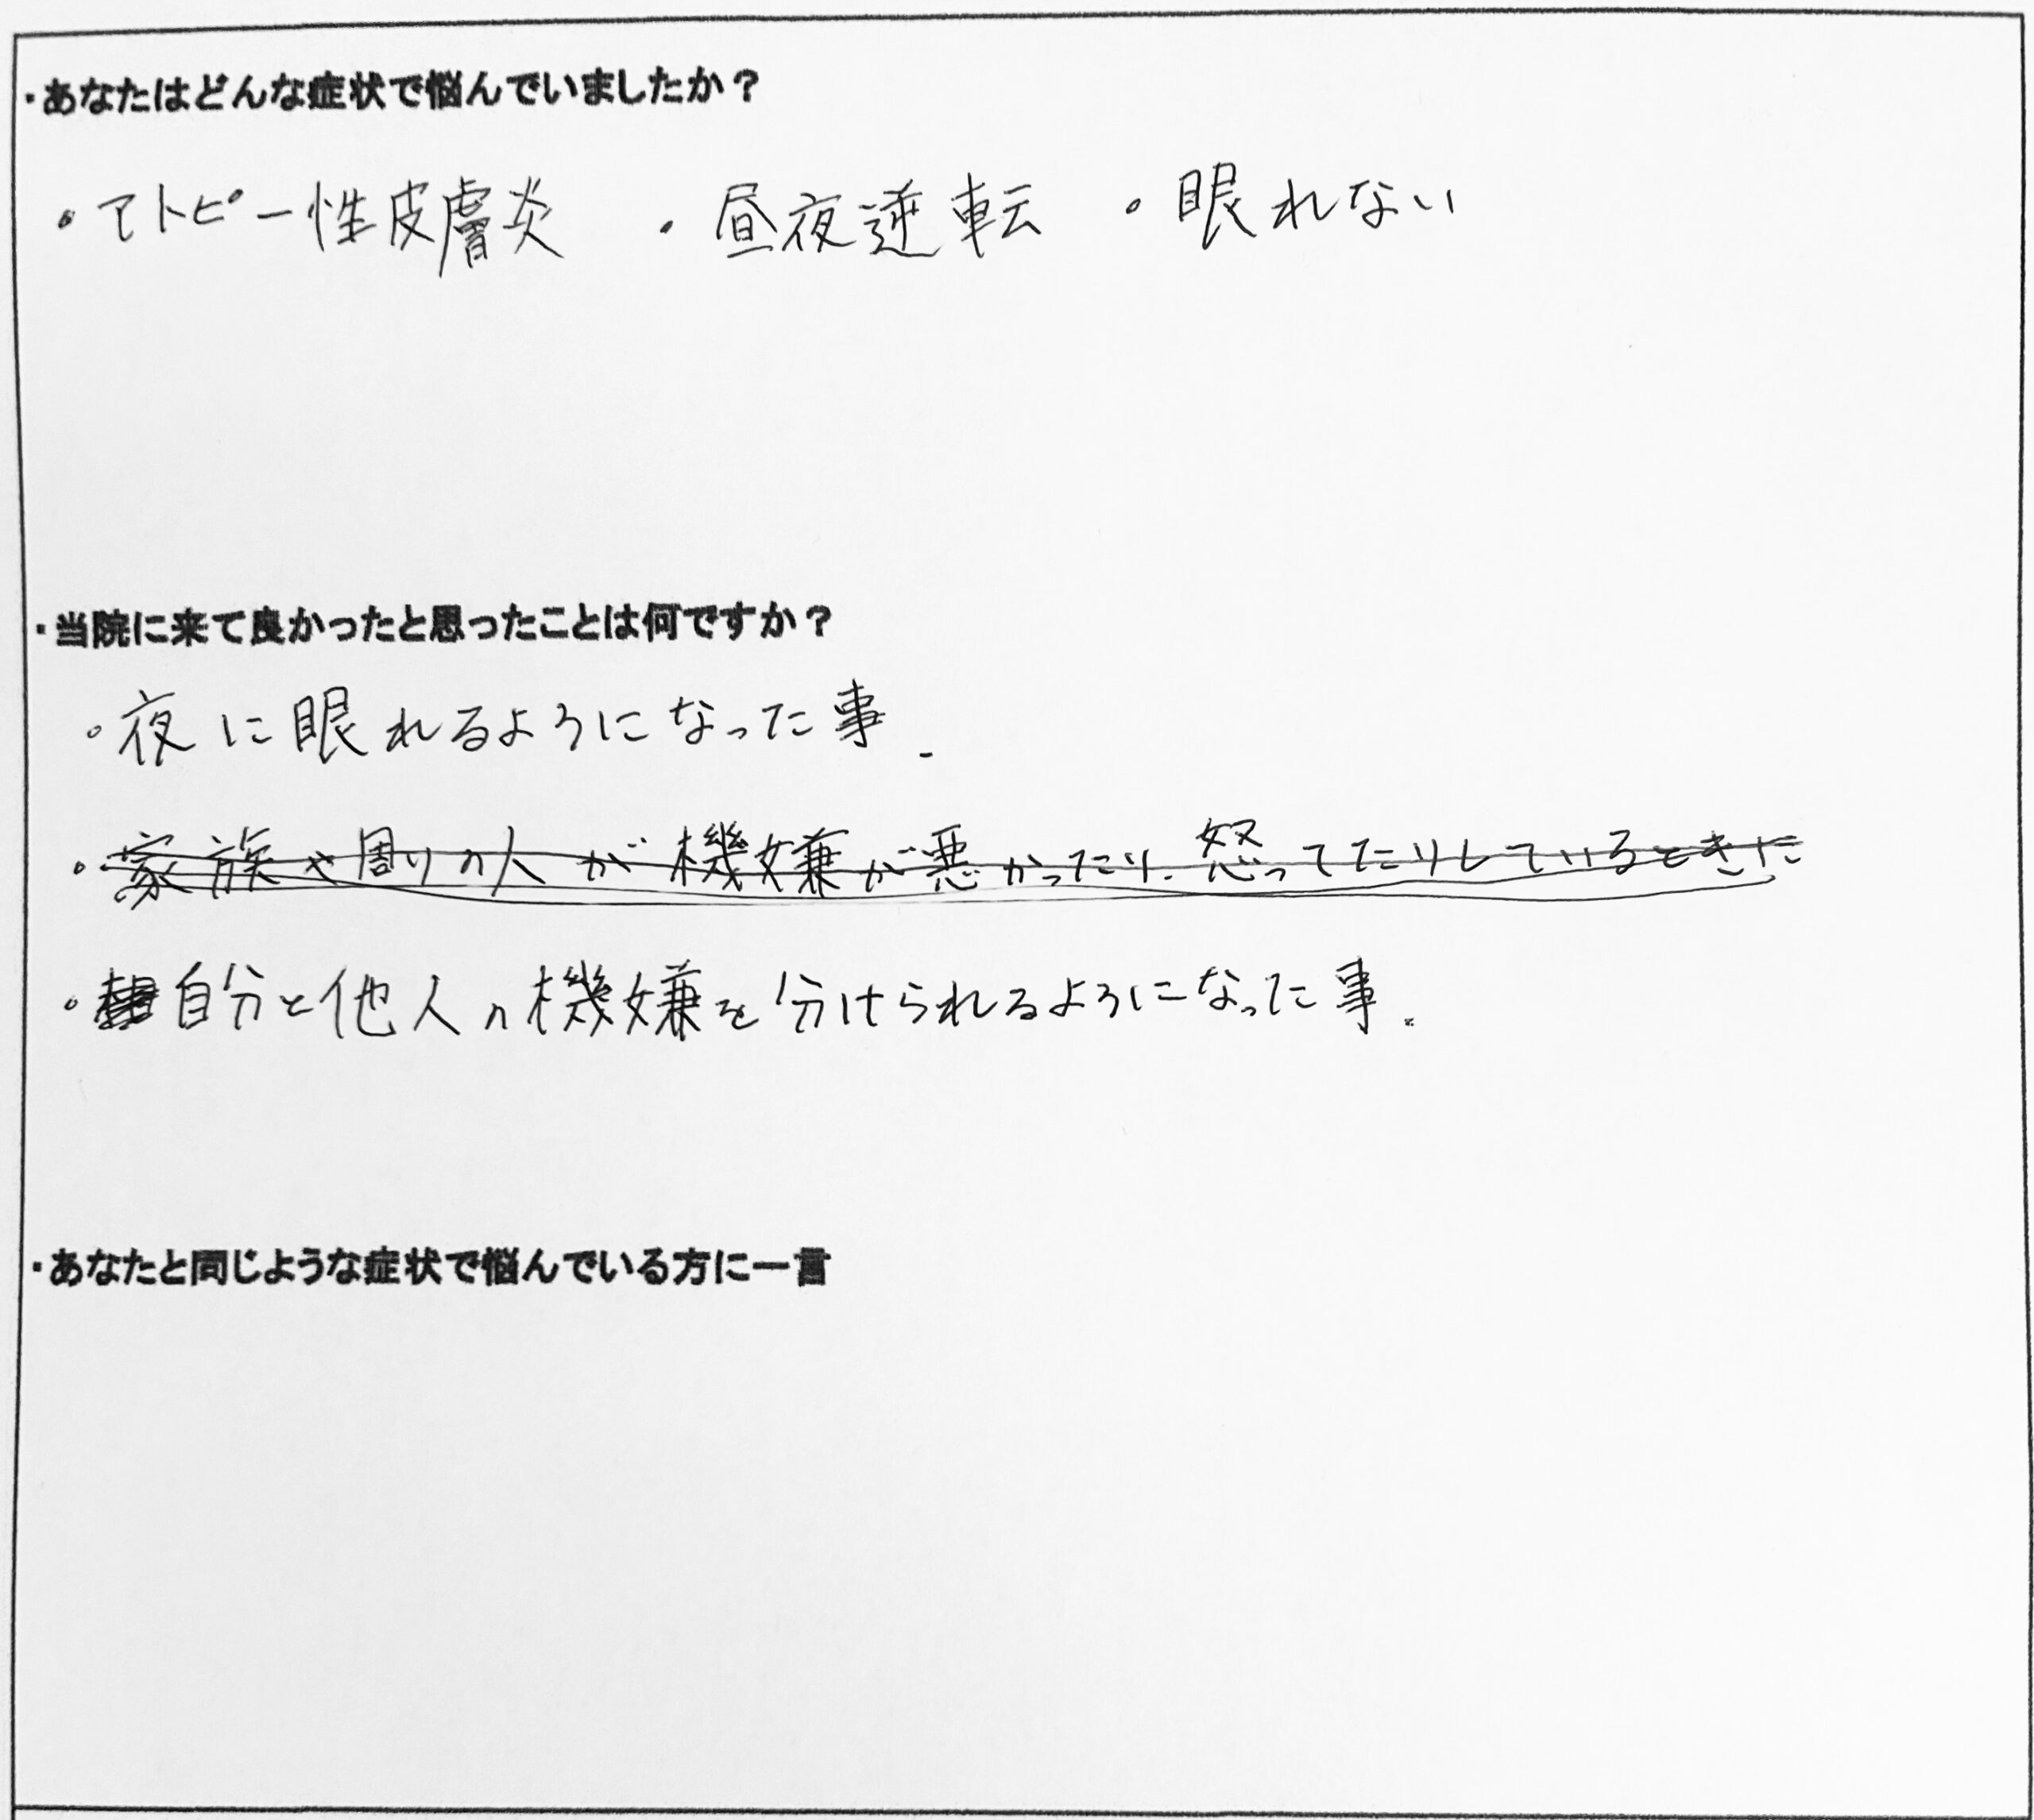 ・あなたはどんな症状で悩んでいましたか？
・アトピー性皮膚炎 ・昼夜逆転 ・眠れない
・当院に来て良かったと思ったことは何ですか？
・夜に眠れるようになった事.
・家族や周りの人が機嫌が悪かったり.怒ってたりしているときに
・自分と他人の機嫌を分けられるようになった事.
・あなたと同じような症状で悩んでいる方に一言